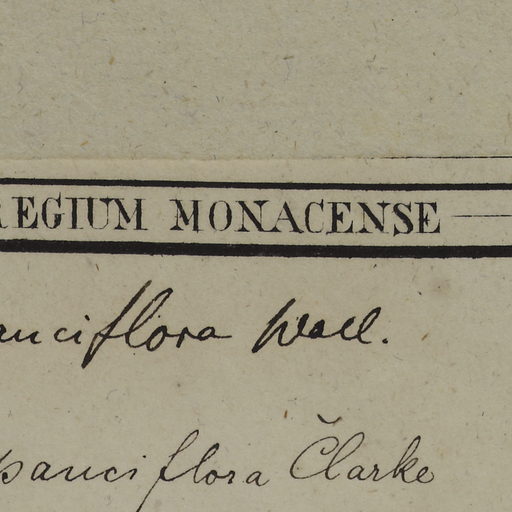 REGIUM MONACENSE
auciflora Wall.
pauciflora Clarke